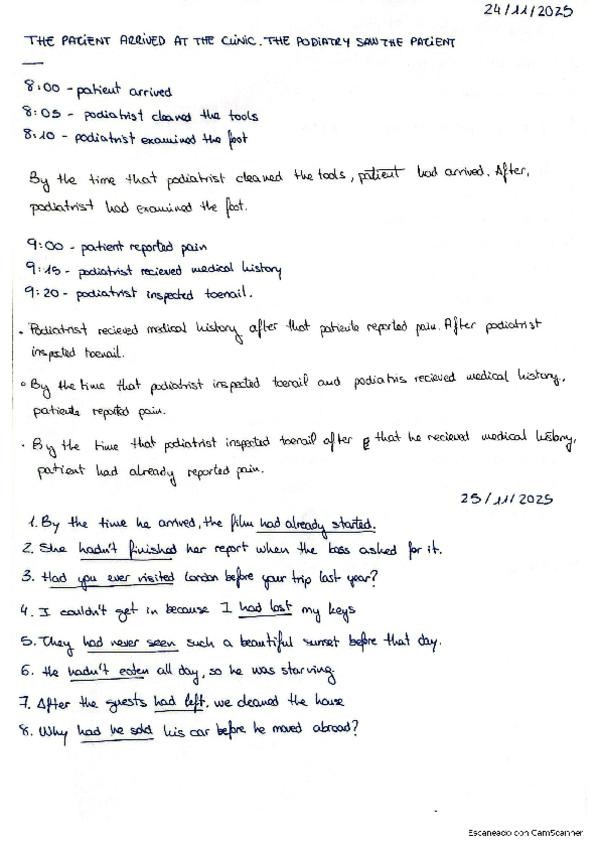 24/11/2025
THE PACIENT ARRIVED AT THE CLINIC. THE PODIATRY SAW THE PACIENT
8:00 - patient arrived
8:05 - podiatrist cleaned the tools
8:10 - podiatrist examined the foot
By the time that podiatrist cleaned the tools, patient had arrived. After,
podiatrist had examined the foot.
9:00 - patient reported pain
9:15 - podiatrist recieved medical history
9:20 - podiatrist inspected toenail.
. Podiatrist recieved medical history after that patiente reported pain. After podiatrist
inspected toenail.
• By the time that podiatrist inspected toenail and podiatris recieved medical history,
patiente reported pain.
. By the time that podiatrist inspected toenail after that he recieved medical history,
patient had already reported pain.
25/11/2025
1. By the time he arrived, the film had already started.
2. She hadn't finished her report when the boss asked for it.
3. Had you ever visited London before your trip last year?
4. I couldn't get in because I had lost my keys
5. They had never seen such a beautiful sunset before that day.
6. He hadn't eaten all day, so he was starving.
7. After the guests had left, we cleaned the house
8. Why had he sold his car before he moved abroad?
Escaneado con CamScanner